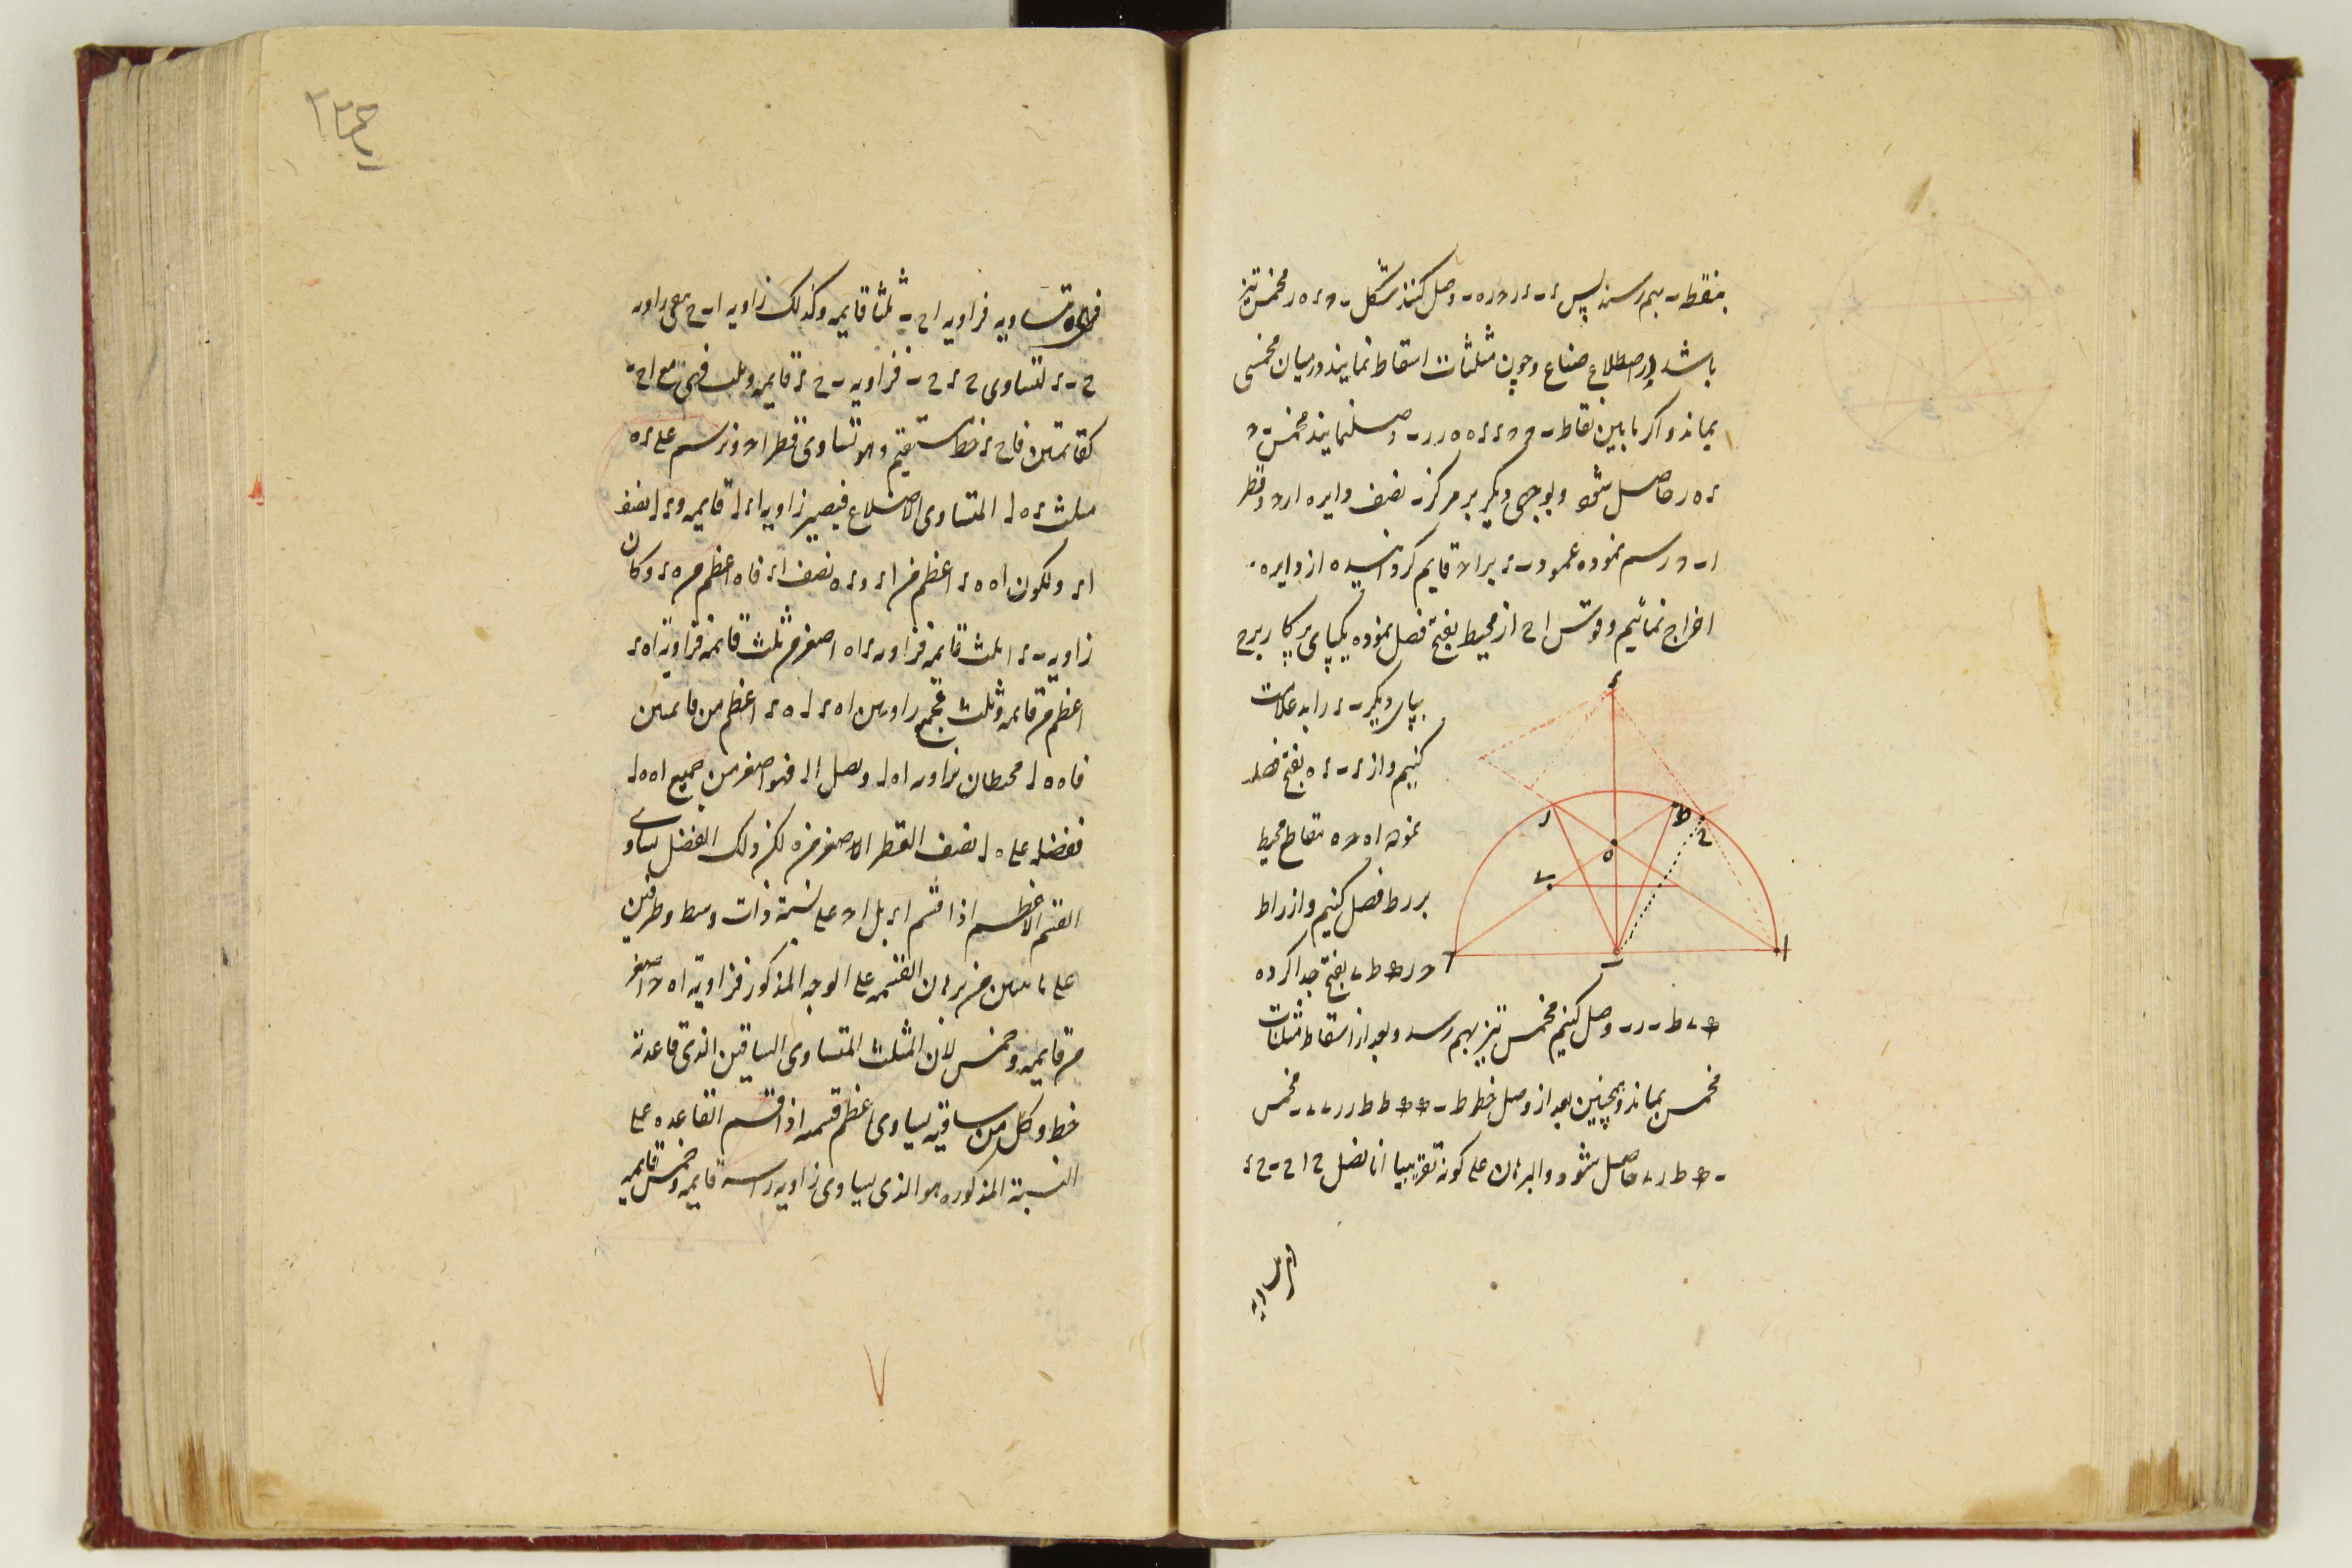 بنقط ب بهم رسند پس ء ب ء ر د ر ه ب وصل کنند شکل ب د ء ه ر مخمس تیز
باشد در اصطلاح صناع و چون مثلثات اسقاط نمایند در میان مخمسی
بماند و اکر ما بین نقاط ب د د ء ء ه ه ر ر ب وصل نمایند مخمس ب د
ء ه ر حاصل شود و بوجهی دیکر بر مرکز ب نصف دایره ا ر د و قطر
ا ب د رسم نموده عمود ب ء بر ا د قایم کردانیده از دایره
اخراج نمائیم و قوس ا ح از محیط بفتح فصل نموده یکپای پرکار بر ح
بپای دیکر ب ء را بد علامت
کنیم و از ء ب ء ه بفتح فصل
نموده ا ه د ه تقاطع محیط
بر ر ط فصل کنیم و از ر ا ط
د ر ه ط ی بفتح جدا کرده
ه ی ط ب ر ب وصل کنیم مخمس تیز بهم رسد و بعد از اسقاط مثلثات
مخمس بماند و همچنین بعد از وصل خطوط ب ه ه ط ط ر ر ی ی ب مخمس
ب ه ط ر ی حاصل شود و البرهان علی کونه تقریبیا انا نصل ح ا ح ب ح ء
متساویه فزاویه ا ح ب ثلثا قایمه وکذلک زاویه ا ب ح فهی مع زاویه
ح ب ء لتساوی ح ء ح ب فزاویه ب ح ء قایمه وثلث فهی مع ا ح ب
کقائمتین فا ح ء خط مستقیم و هو تساوی قطر ا د و نرسم علی ء ه
مثلث ء ه ل المتساوی الاضلاع فیصیر زاویه ا ء ل قایمه و ء ل نصف
ا ء ولکون ا ه ه ء اعظم من ا ء و ء ه نصف ا ء فا ه اعظم من ه ء وکان
زاویه ب ء ا ثلث قایمه فزاویه ء ا ه اصغر من ثلث قائمه فزاویة ا ه ء
اعظم من قایمه وثلث فجمیع زاویتین ا ه ء ل ه ء اعظم من قائمتین
فا ه ه ل محیطان بزاویه ا ه ل ونصل ا ل فهو اصغر من جمیع ا ه ه ل
ففضله علی ه ل نصف القطر الاصغر من ه لکن ذلک الفضل یساوی
القسم الاعظم اذا قسم ا ء بل ا د علی نسبة ذات وسط وطرفین
علی ما تبین من برهان القسمه علی الوجه المذکور فزاویة ا ه د اصغر
من قایمه وخمس لان المثلث المتساوی الساقین الذی قاعدته
خط وکل من ساقیه یساوی اعظم قسمیه اذا قسم القاعده علی
النسبة المذکوره هو الذی یساوی زاویه راسه قایمه وخمس قایمه